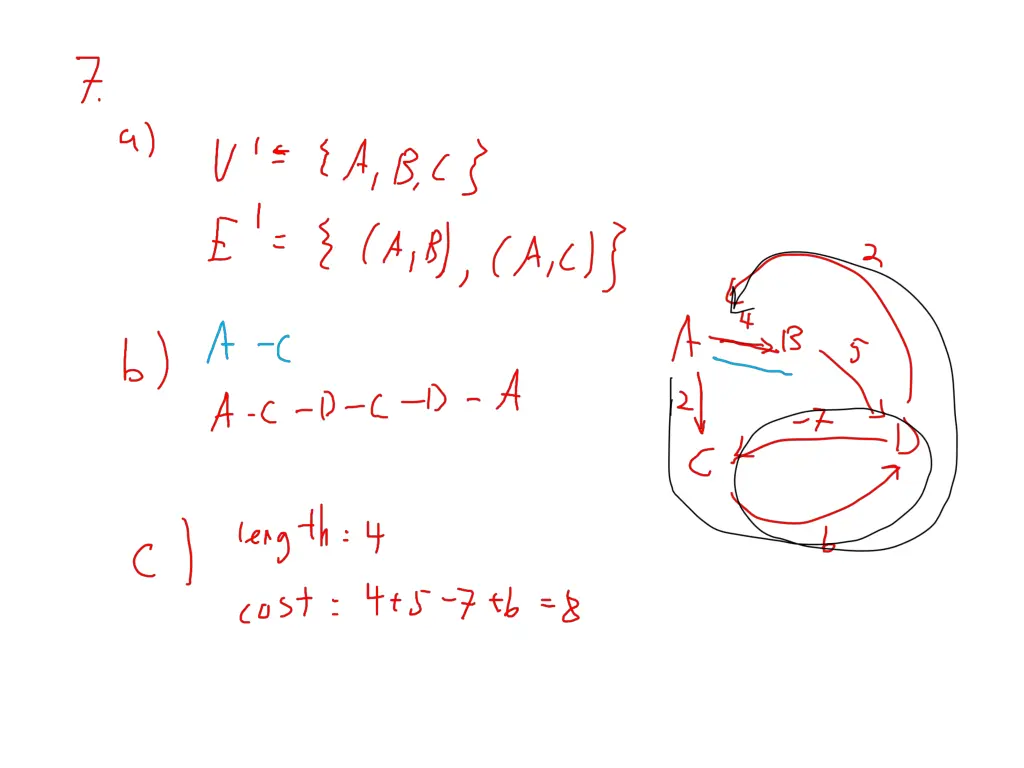 7.
a) V' = {A, B, C}
E' = { (A,B), (A,C)}
b) A - C
A - C - D - C - D - A
c) length: 4
cost = 4+5-7+6 = 8
2
4
A B 5
2 -7
C D
6